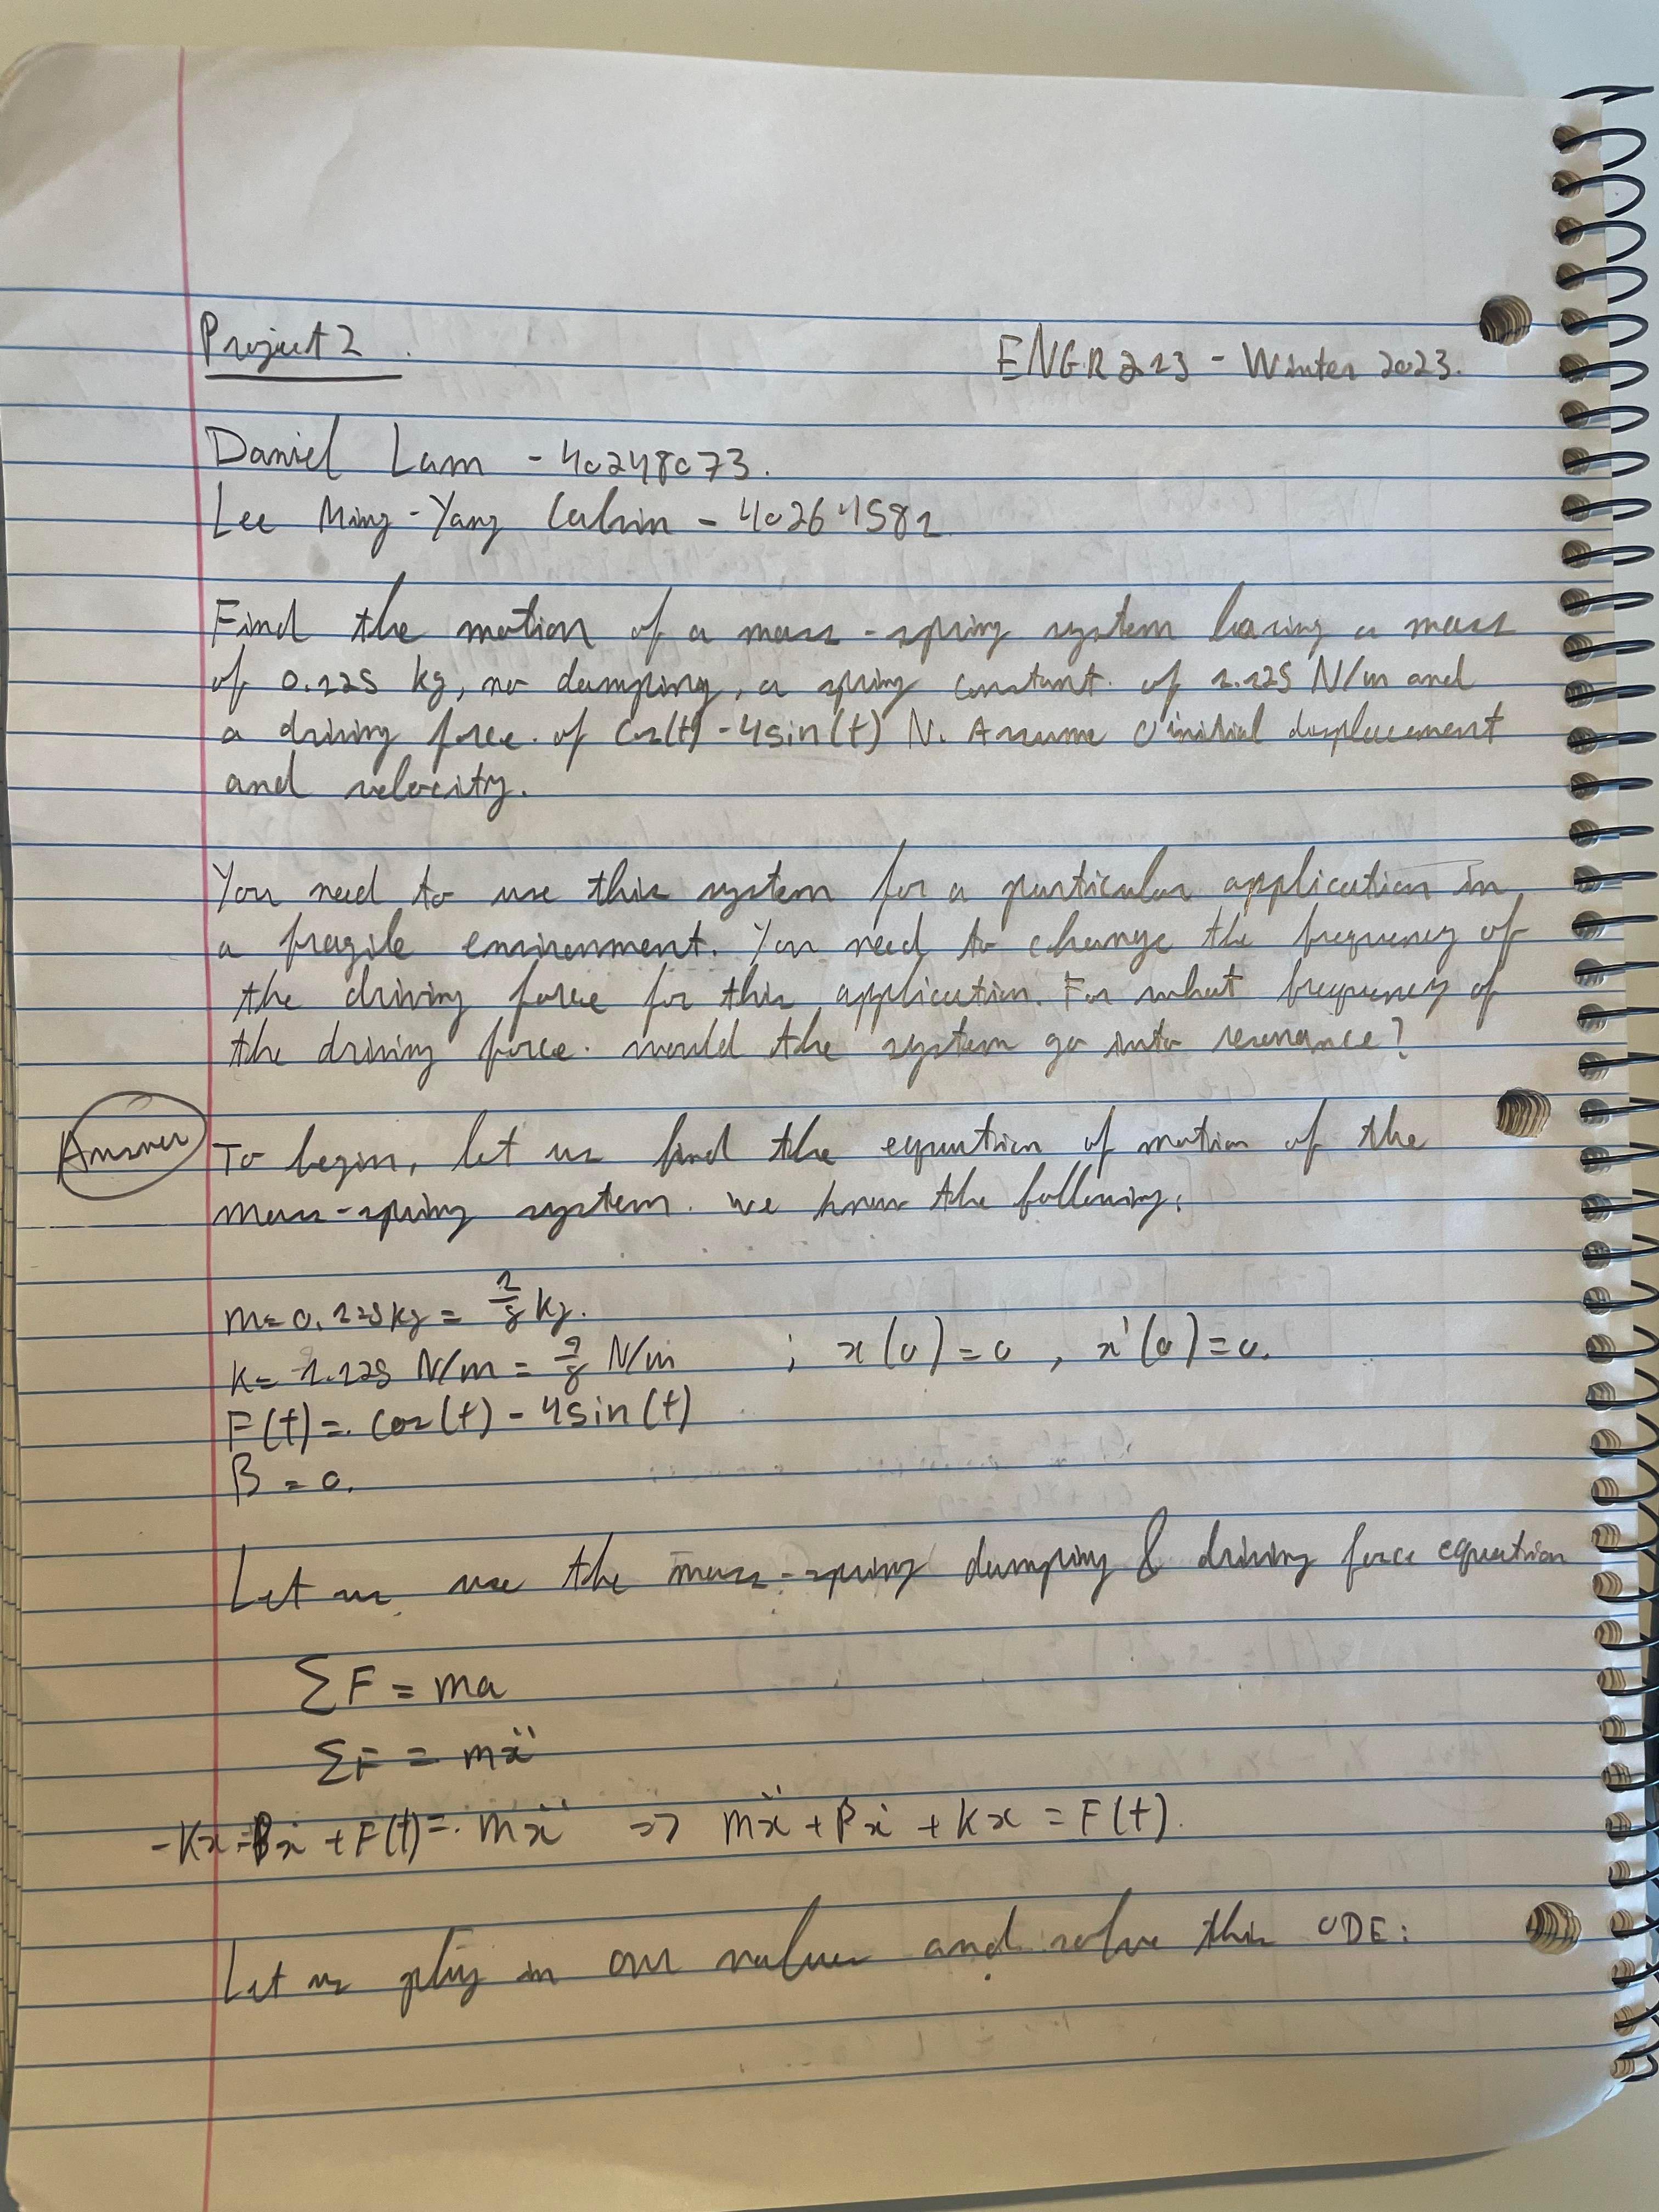 Project 2.
ENGR 213 - Winter 2023.
Daniel Lam - 40248073.
Lee Ming-Yang Calvin - 40264581
Find the motion of a mass-spring system having a mass
of 0.125 kg, no damping, a spring constant of 1.125 N/m and
a driving force of Cos(t) - 4sin(t) N. Assume 0 initial displacement
and velocity.
You need to use this system for a particular application in
a fragile environment. You need to change the frequency of
the driving force for this application. For what frequency of
the driving force would the system go into resonance?
Answer
To begin, let us find the equation of motion of the
mass-spring system. we know the following:
m = 0.125 kg = 1/8 kg.
K = 1.125 N/m = 9/8 N/m ; x(0) = 0, x'(0) = 0.
F(t) = Cos(t) - 4sin(t)
β = 0.
Let us use the mass-spring damping & driving force equation
ΣF = ma
ΣF = mẍ
-Kx - βẋ + F(t) = mẍ => mẍ + βẋ + Kx = F(t).
Let us plug in our values and solve this ODE: